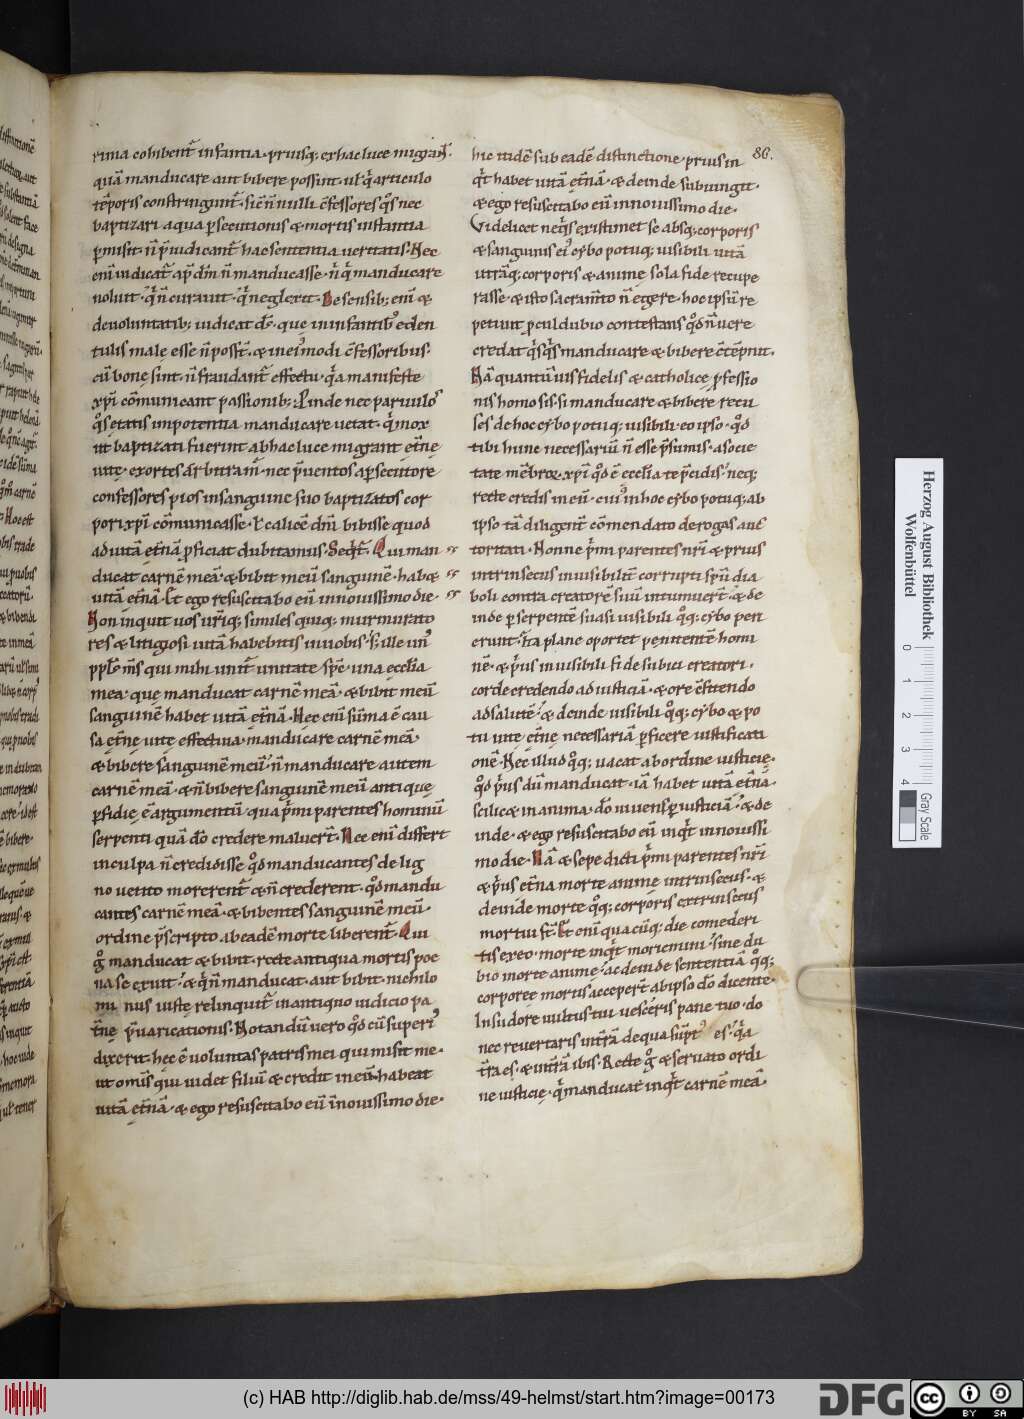 86.
rima cohibent᷒ infantia · priusq; ex hac luce migrant᷒.
quā manducare aut bibere possint · ul' q̄ articulo
tēporis constringunt᷒ · sic n̄ nulli c̄fessores q̄s nec
baptizari aqua persecutionis & mortis instantia
ꝑmisit · n̄ p̄iudicant᷒ hac sententia ueritatis · Nec
enī indicat᷒ ap̄ dm̄ n̄ manducasse · n̄ q̄ manducare
noluit · q̄ n̄ curauit · q̄ neglexit · De sensib; enī &
de uoluntatib; iudicat ds̄ · que in infantib᷒ & den
tulis male esse n̄ posst̄ · & in ei᷒modi c̄fessoribus ·
cū bone sint · n̄ fraudant᷒ effectu · q̄a manifeste
xp̄i cōmunicant passionib; · Proinde nec paruulos
q̄s etatis impotentia manducare uetat · q̄ mox
ut baptizati fuerint ab hac luce migrant et̄ne
uite · exortes arbitram᷒ · nec p̄uentos a ꝑsecutore
confessores pios in sanguine suo baptizatos cor
pori xp̄i cōmunicasse · & calicē dn̄i bibisse quod
ad uitā et̄nā ꝓficiat dubitamus · Seqt᷒ · Qui man
ducat carnē meā · & bibit meū sanguinē · habet
uitā et̄nā · Et ego resuscitabo eū in nouissimo die ·
Non inquit uos utiq; similes quiq; murmurato
res & litigiosi uitā habebitis in uobis · sꝫ ille un᷒
ppl's m̄s qui mihi unit᷒ unitate sp̄c · una eccl'ia
mea · que manducat carnē meā · & bibit meū
sanguinē habet uitā et̄nā · Hec enī sūma ē cau
sa et̄ne uite effectiua · manducare carnē meā ·
& bibere sanguinē meū · n̄ manducare autem
carnē meā · & n̄ bibere sanguinē meū antique
ꝑfidie ē argumentū · qua p̄mi parentes hominū
serpenti quā dō credere maluert̄ · Nec enī differt
in culpa n̄ credidisse qd̄ manducantes de lig
no uetito morerent᷒ & n̄ crederent · qd̄ mandu
cantes carnē meā · & bibentes sanguinē meū ·
ordine p̄scripto ab eadē morte liberent᷒ · Qui
g̊ manducat & bibit · recte antiqua mortis poe
na se exuit · & q̄ n̄ manducat · aut bibit · nichilo
mi nus iuste relinquit᷒ in antiquo iudicio pa
t̄ne p̄uaricationis · Notandū uero qd̄ cū superi᷒
dixerit · hec ē uoluntas patris mei qui misit me ·
ut om̄s qui uidet filiū & credit in eum habeat
uitā et̄nā · & ego resuscitabo eū ī nouissimo die ·
hic itidē sub eadē distinctione · prius in
q̄t habet uitā et̄nā · & deinde subiungit ·
& ego resuscitabo eū in nouissimo die ·
Videlicet neq̄s existimet se absq; corporis
& sanguinis ei᷒ cybo potuq; uisibili uitā
utrāq; corporis & anime sola fide recupe
rasse · & isto sacram̄to n̄ egere · hoc ipsū re
petiuit ꝓculdubio contestans qd̄ n̄ uere
credat q̄sq̄s manducare & bibere c̄tēpnit ·
Nā quantūuis fidelis & catholice ꝓfessio
nis homo sis · si manducare & bibere recu
ses de hoc cybo potuq; uisibili · eo ipso · qd̄
tibi hunc necessariū n̄ esse p̄sumis · a socie
tate mēbroꝝ xp̄i qd̄ ē eccl'ia te p̄cidis · neq;
recte credis in eū · cui᷒ in hoc cybo potuq; ab
ipso tā diligent᷒ cōmendato derogas auc
toritati · Nonne p̄mi parentes nr̄i & prius
intrinsecus inuisibilit᷒ corrupti sp̄u dia
boli contra creatorē suū intumuert̄ · & de
inde ꝑ serpentē suasi uisibili qq; cybo peri
erunt · Ita plane oportet penitentē homi
nē · & p̄us inuisibili fide subici creatori ·
corde credendo ad iusticiā · & ore c̄fitendo
ad salutē · & deinde uisibili qq; cybo & po
tu uite et̄ne necessariā ꝑficere iustificati
onē · Nec illud qq; uacat ab ordine iusticie ·
qd̄ p̄us dū manducat · iā habet uitā et̄nā ·
scilicet in anima · dō uiuens ꝑ iusticiā · & de
inde · & ego resuscitabo eū inq̄t in nouissi
mo die · Nā & sepe dicti p̄mi parentes nr̄i
& p̄us et̄na morte anime intrinsecus · &
deinde morte qq; corporis extrinsecus
mortui st̄ · Et enī quacūq; die comederi
tis ex eo · morte inq̄t moriemini · sine du
bio morte anime · ac deinde sententiā qq;
corporee mortis accepert̄ ab ipso dō dicente ·
In sudore uultus tui uesceris pane tuo · do
nec reuertaris in trā de qua sūpt᷒ es · q̄a
t̄ra es · & in t̄rā ibis · Recte g̊ & seruato ordi
ne iusticie · q̄ manducat inq̄t carnē meā ·
Herzog August Bibliothek
Wolfenbüttel
0 1 2 3 4
Gray Scale
(c) HAB http://diglib.hab.de/mss/49-helmst/start.htm?image=00173
DFG
cc BY SA